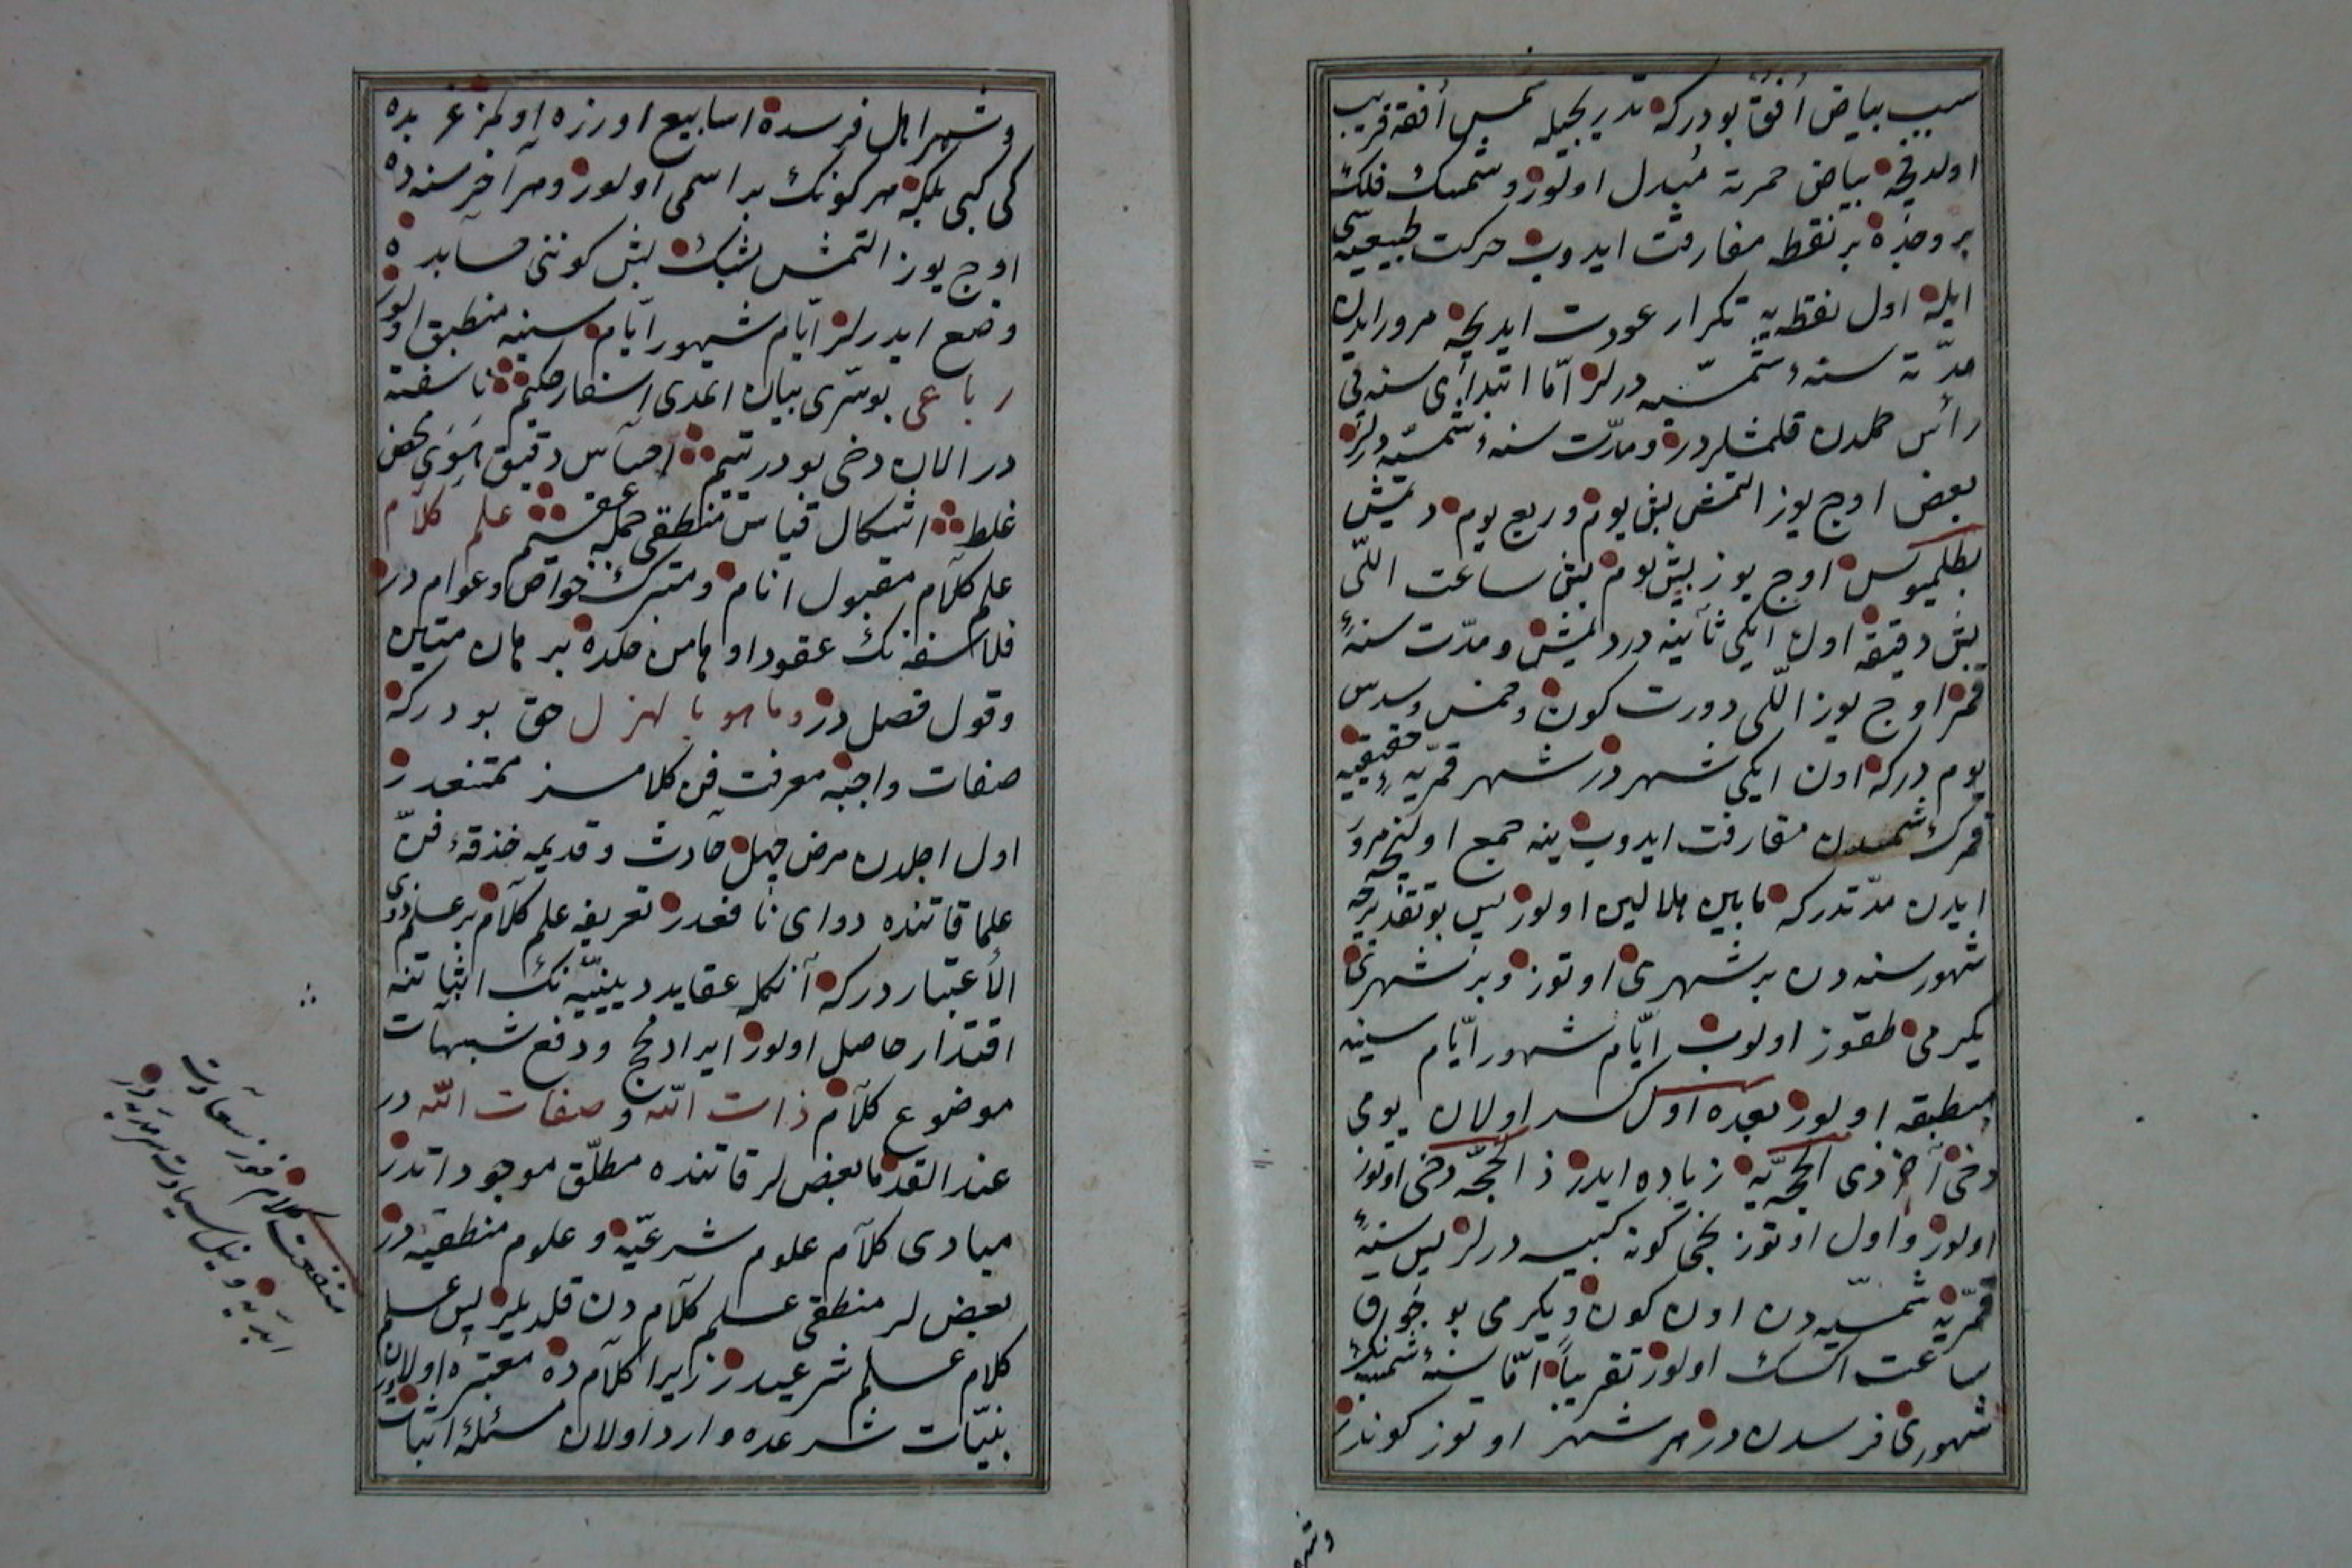 سبب بياض أفق بودركه تدريجيله شمس أفقه قريب
اولدقجه بياض حمرته مبدل اولور وشمسك فلك
بروجده بر نقطه مفارقت ايدوب حركت طبيعيه سى
ايله اول نقطه يه تكرار عودت ايديجه مرور ايدن
مدّته سنهٔ شمسيّه درلر امّا ابتداى سنه يى
رأس حملدن قلمشلردر ومدّت سنهٔ شمسيّه درلر
بعض اوج يوز التمش بش يوم وربع يوم ديمش
بطلميوس اوج يوز بش يوم بش ساعت اللّى
بش دقيقه اون ايكى ثانيه در ديمش ومدّت سنهٔ
قمر اوج يوز اللّى دورت كون وخمس وسدس
يوم دركه اون ايكى شهر در شهر قمريّهٔ حقيقيه
قمرك شمسدن مفارقت ايدوب ينه جمع اولنجه مرور
ايدن مدّتدركه مابين هلالين اولور پس بو تقديرجه
شهور سنه دن بر شهرى اوتوز وبر شهرى
يكرمى طقوز اولوب ايّام شهور ايّام سنيه
منطبقه اولور بعده اول كسر اولان يومى
دخى آخر ذى الحجّه يه زياده ايدر ذالحجّه دخى اوتوز
اولور واول اوتوزنجى كونه كبيسه درلر پس سنهٔ
قمريّه شمسيّه دن اون كون ويكرمى بوجوق
ساعت اكسك اولور تقريباً امّا سنهٔ شمسيه نك
شهورى فرسدن در هر شهر اوتوز كوندر
وشهر
وشهر اهل فرسده اسابيع اوزره اولمز عربده
كى كبى بلكه هر كونك بر اسمى اولور وهر آخر سنه ده
اوج يوز التمش بشك بش كوننى حسابده
وضع ايدرلر ايّام شهور ايّام سنيه منطبق اولور
رباعى بو سرّى بيان ايمدى استفار حكيم ناسفته
در الان دخى بو در يتيم احساس دقيق هوى محض
غلط اشكال قياس منطقى جمله عقيم علم كلام
علم كلام مقبول انام ومتبرك خواص وعوام در
فلاسفه نك عقود اوهامن حلده برهان متين
وقول فصل در وما هو بالهزل حق بودركه
صفات واجبه معرفت فن كلامسز ممتنعدر
اول اجلدن مرض جهل حادث وقديمه حذقهٔ فنّ
علما قاتنده دواى نافعدر تعريفه علم كلام بر علم ذوى
الأعتبار دركه آنكله عقايد دينيّه نك اثباتنه
اقتدار حاصل اولور ايراد حجج ودفع شبهات
موضوع كلام ذات اللّه وصفات اللّه در
عند القدما بعضلر قاتنده مطلّق موجوداتدر
مبادى كلام علوم شرعيّه وعلوم منطقيه در
بعضلر منطقى علم كلام دن قلديلر پس علم
كلام علم شرعيدر زيرا كلام ده معتبره اولان
بنيّات شرعده وارد اولان مسئلهٔ اثبات
منفعت كلام فوز سعادت
ابديّه ونيل سيادت سرمديه در